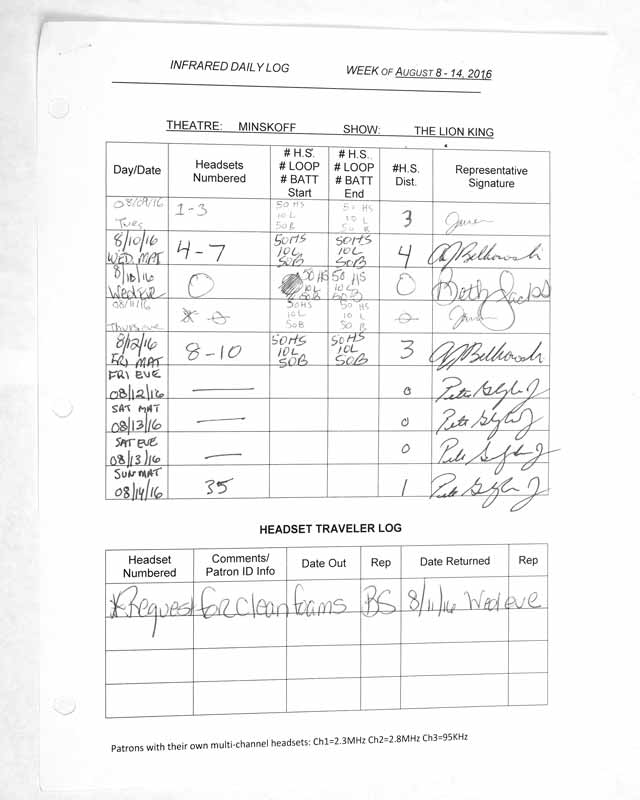 INFRARED DAILY LOG WEEK OF AUGUST 8 - 14, 2016
THEATRE: MINSKOFF SHOW: THE LION KING
Day/Date Headsets Numbered # H.S. # LOOP # BATT Start # H.S. # LOOP # BATT End #H.S. Dist. Representative Signature
08/09/16 Tues 1-3 50 HS 10 L 50 B 50 HS 10 L 50 B 3
8/10/16 WED. MAT 4-7 50HS 10L 50B 50HS 10L 50B 4
8/10/16 Wed Eve 0 50 HS 10L 50B 50 HS 10 L 50 0 Beth Jacks
08/11/16 Thurs eve 0 50HS 10 L 50B 50 HS 10 L 50 B 0
8/12/16 FRI MAT 8-10 50HS 10L 50B 50HS 10L 50B 3
FRI EVE 08/12/16 — 0
SAT MAT 08/13/16 — 0
SAT EVE 08/13/16 — 0
SUN MAT 08/14/16 35 1
HEADSET TRAVELER LOG
Headset Numbered Comments/ Patron ID Info Date Out Rep Date Returned Rep
*Request for clean foams BS 8/11/16 Wed eve
Patrons with their own multi-channel headsets: Ch1=2.3MHz Ch2=2.8MHz Ch3=95KHz